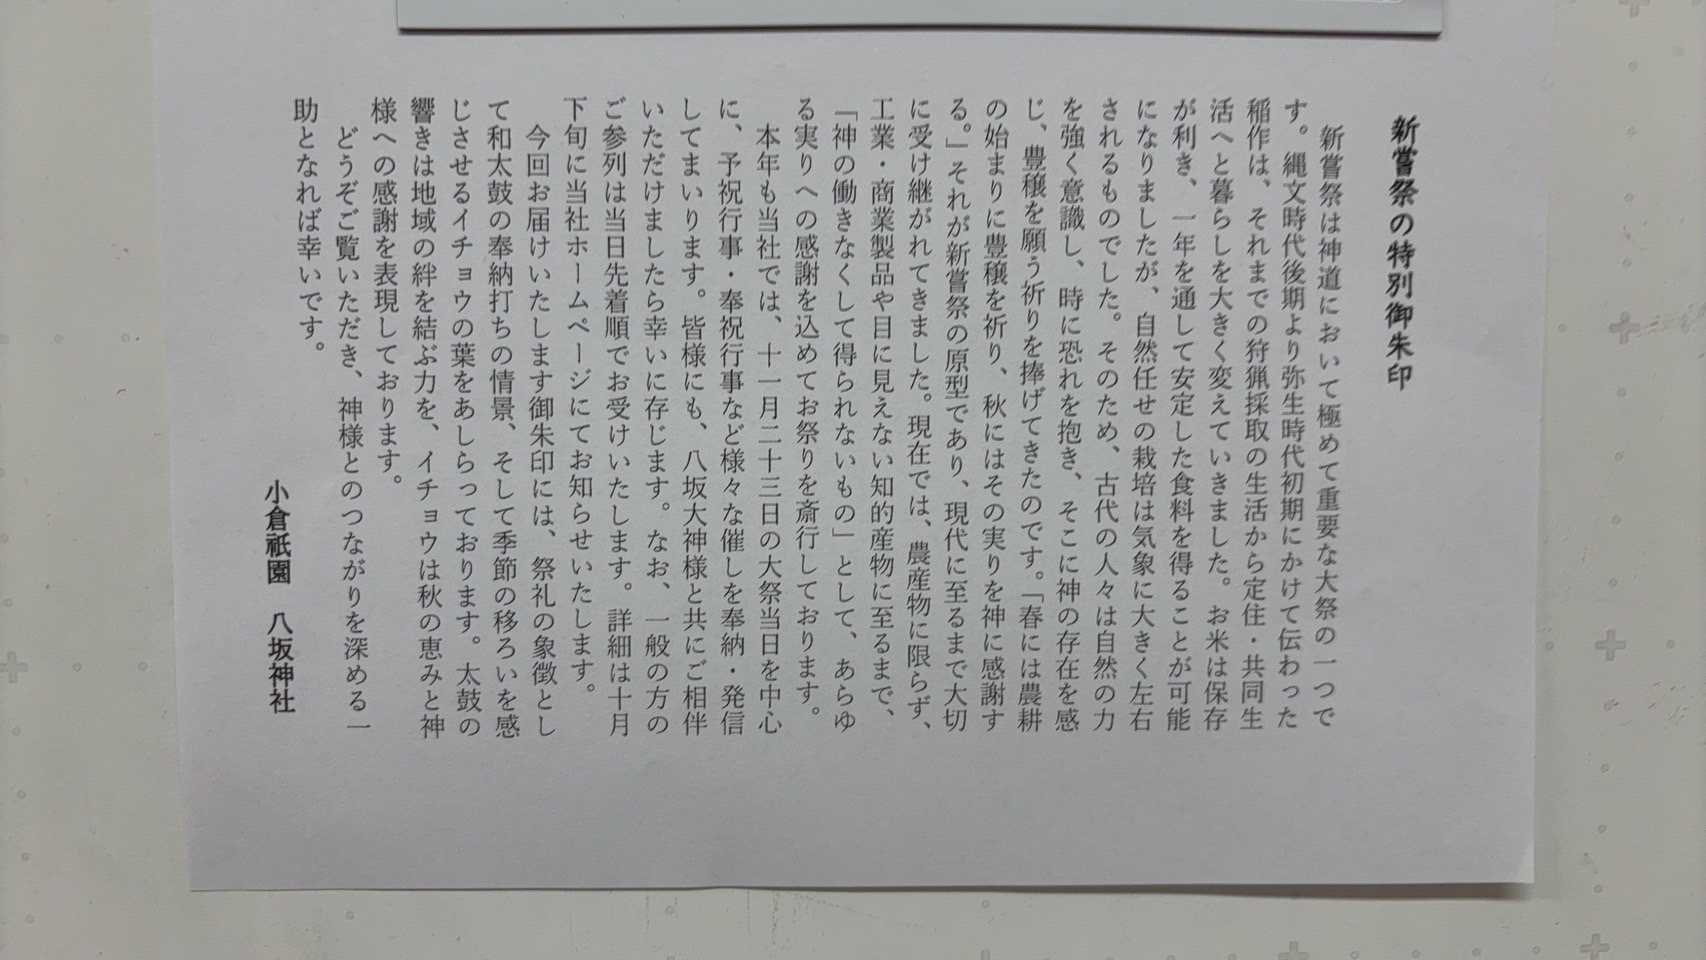 新嘗祭の特別御朱印
新嘗祭は神道において極めて重要な大祭の一つで
す。縄文時代後期より弥生時代初期にかけて伝わった
稲作は、それまでの狩猟採取の生活から定住・共同生
活へと暮らしを大きく変えていきました。お米は保存
が利き、一年を通して安定した食料を得ることが可能
になりましたが、自然任せの栽培は気象に大きく左右
されるものでした。そのため、古代の人々は自然の力
を強く意識し、時に恐れを抱き、そこに神の存在を感
じ、豊穣を願う祈りを捧げてきたのです。「春には農耕
の始まりに豊穣を祈り、秋にはその実りを神に感謝す
る。」それが新嘗祭の原型であり、現代に至るまで大切
に受け継がれてきました。現在では、農産物に限らず、
工業・商業製品や目に見えない知的産物に至るまで、
「神の働きなくして得られないもの」として、あらゆ
る実りへの感謝を込めてお祭りを斎行しております。
本年も当社では、十一月二十三日の大祭当日を中心
に、予祝行事・奉祝行事など様々な催しを奉納・発信
してまいります。皆様にも、八坂大神様と共にご相伴
いただけましたら幸いに存じます。なお、一般の方の
ご参列は当日先着順でお受けいたします。詳細は十月
下旬に当社ホームページにてお知らせいたします。
今回お届けいたします御朱印には、祭礼の象徴とし
て和太鼓の奉納打ちの情景、そして季節の移ろいを感
じさせるイチョウの葉をあしらっております。太鼓の
響きは地域の絆を結ぶ力を、イチョウは秋の恵みと神
様への感謝を表現しております。
どうぞご覧いただき、神様とのつながりを深める一
助となれば幸いです。
小倉祇園 八坂神社